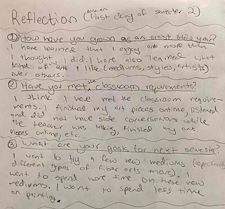 Reflection (last day of semester 2)
① How have you grown as an artist this year?
I have learned that I enjoy art more than
I thought I did. I have also learned what
type of art I like (mediums, styles, artists)
over others.
② Have you met the classroom requirements?
I think I have met the classroom require-
ments. I finished my art pieces ontime, listened
and did not have side conversations while
the teacher was talking, finished my art
pieces online, etc.
③ What are your goals for next semester?
I want to try a few new mediums (especially
different types of fiber arts, more), I
want to spend more time on these new
mediums. I want to spend less time
on painting.